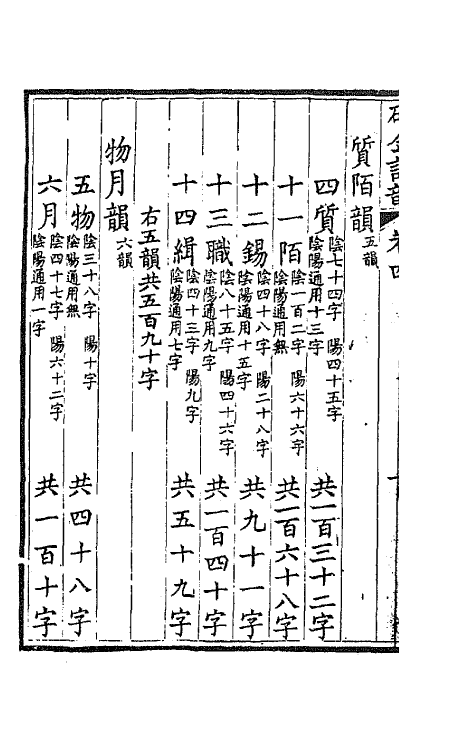 碎金詞韻 卷四
質陌韻 五韻
四質 陰七十四字 陽四十五字 陰陽通用十三字 共一百三十二字
十一陌 陰一百二字 陽六十六字 陰陽通用無 共一百六十八字
十二錫 陰四十八字 陽二十八字 陰陽通用十五字 共九十一字
十三職 陰八十五字 陽四十六字 陰陽通用九字 共一百四十字
十四緝 陰四十三字 陽九字 陰陽通用七字 共五十九字
右五韻共五百九十字
物月韻 六韻
五物 陰三十八字 陽十字 陰陽通用無 共四十八字
六月 陰四十七字 陽六十二字 陰陽通用一字 共一百十字